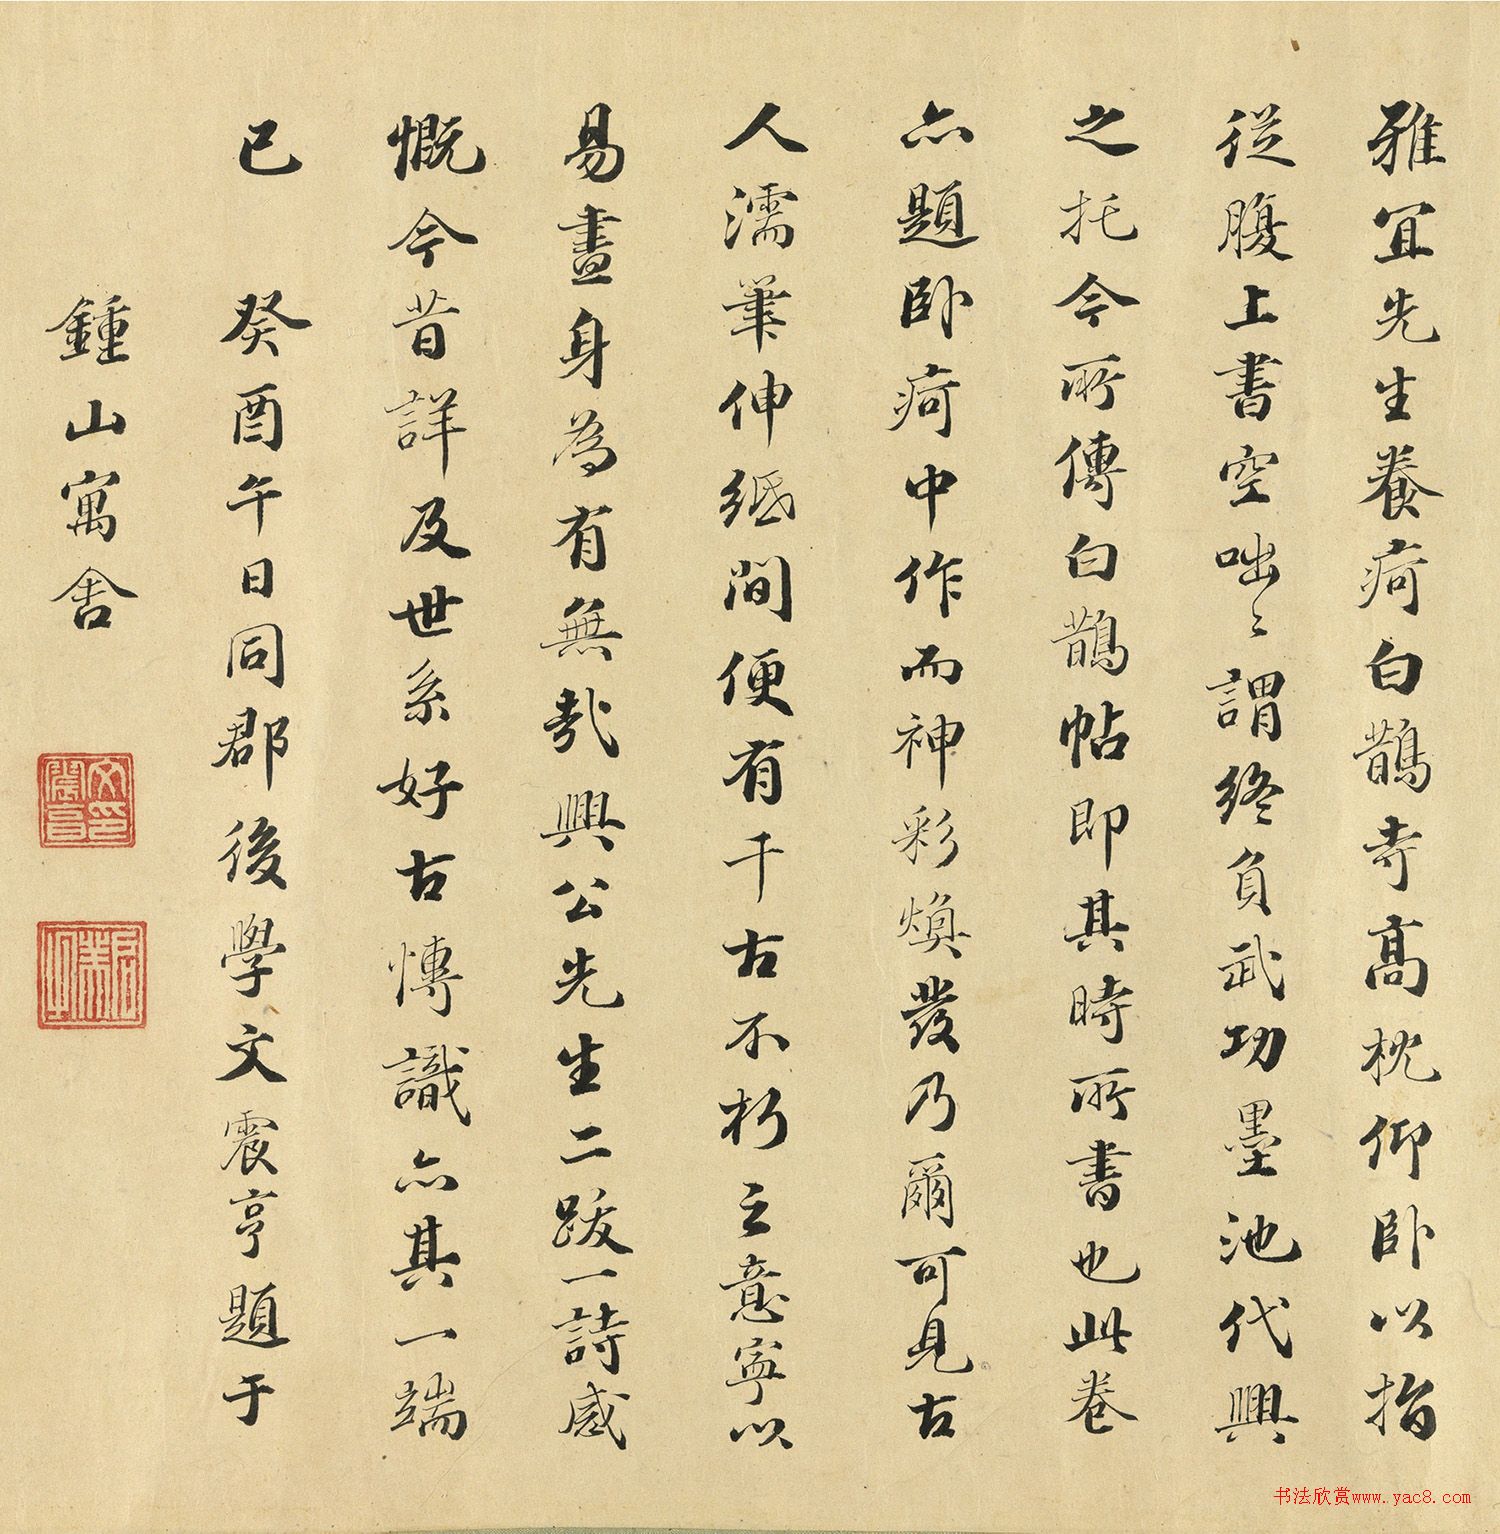 雅宜先生養疴白鵲寺高枕仰卧以指
從腹上書空咄〻謂終負武功墨池代興
之托今所傳白鵲帖即其時所書也此卷
亦題卧疴中作而神彩煥發乃爾可見古
人濡筆伸紙間便有千古不朽之意寧以
易晝身為有無哉興公先生二跋一詩感
慨今昔詳及世系好古博識亦其一端
已 癸酉午日同郡後學文震亨題于
鍾山寓舍
书法欣赏www.yac8.com